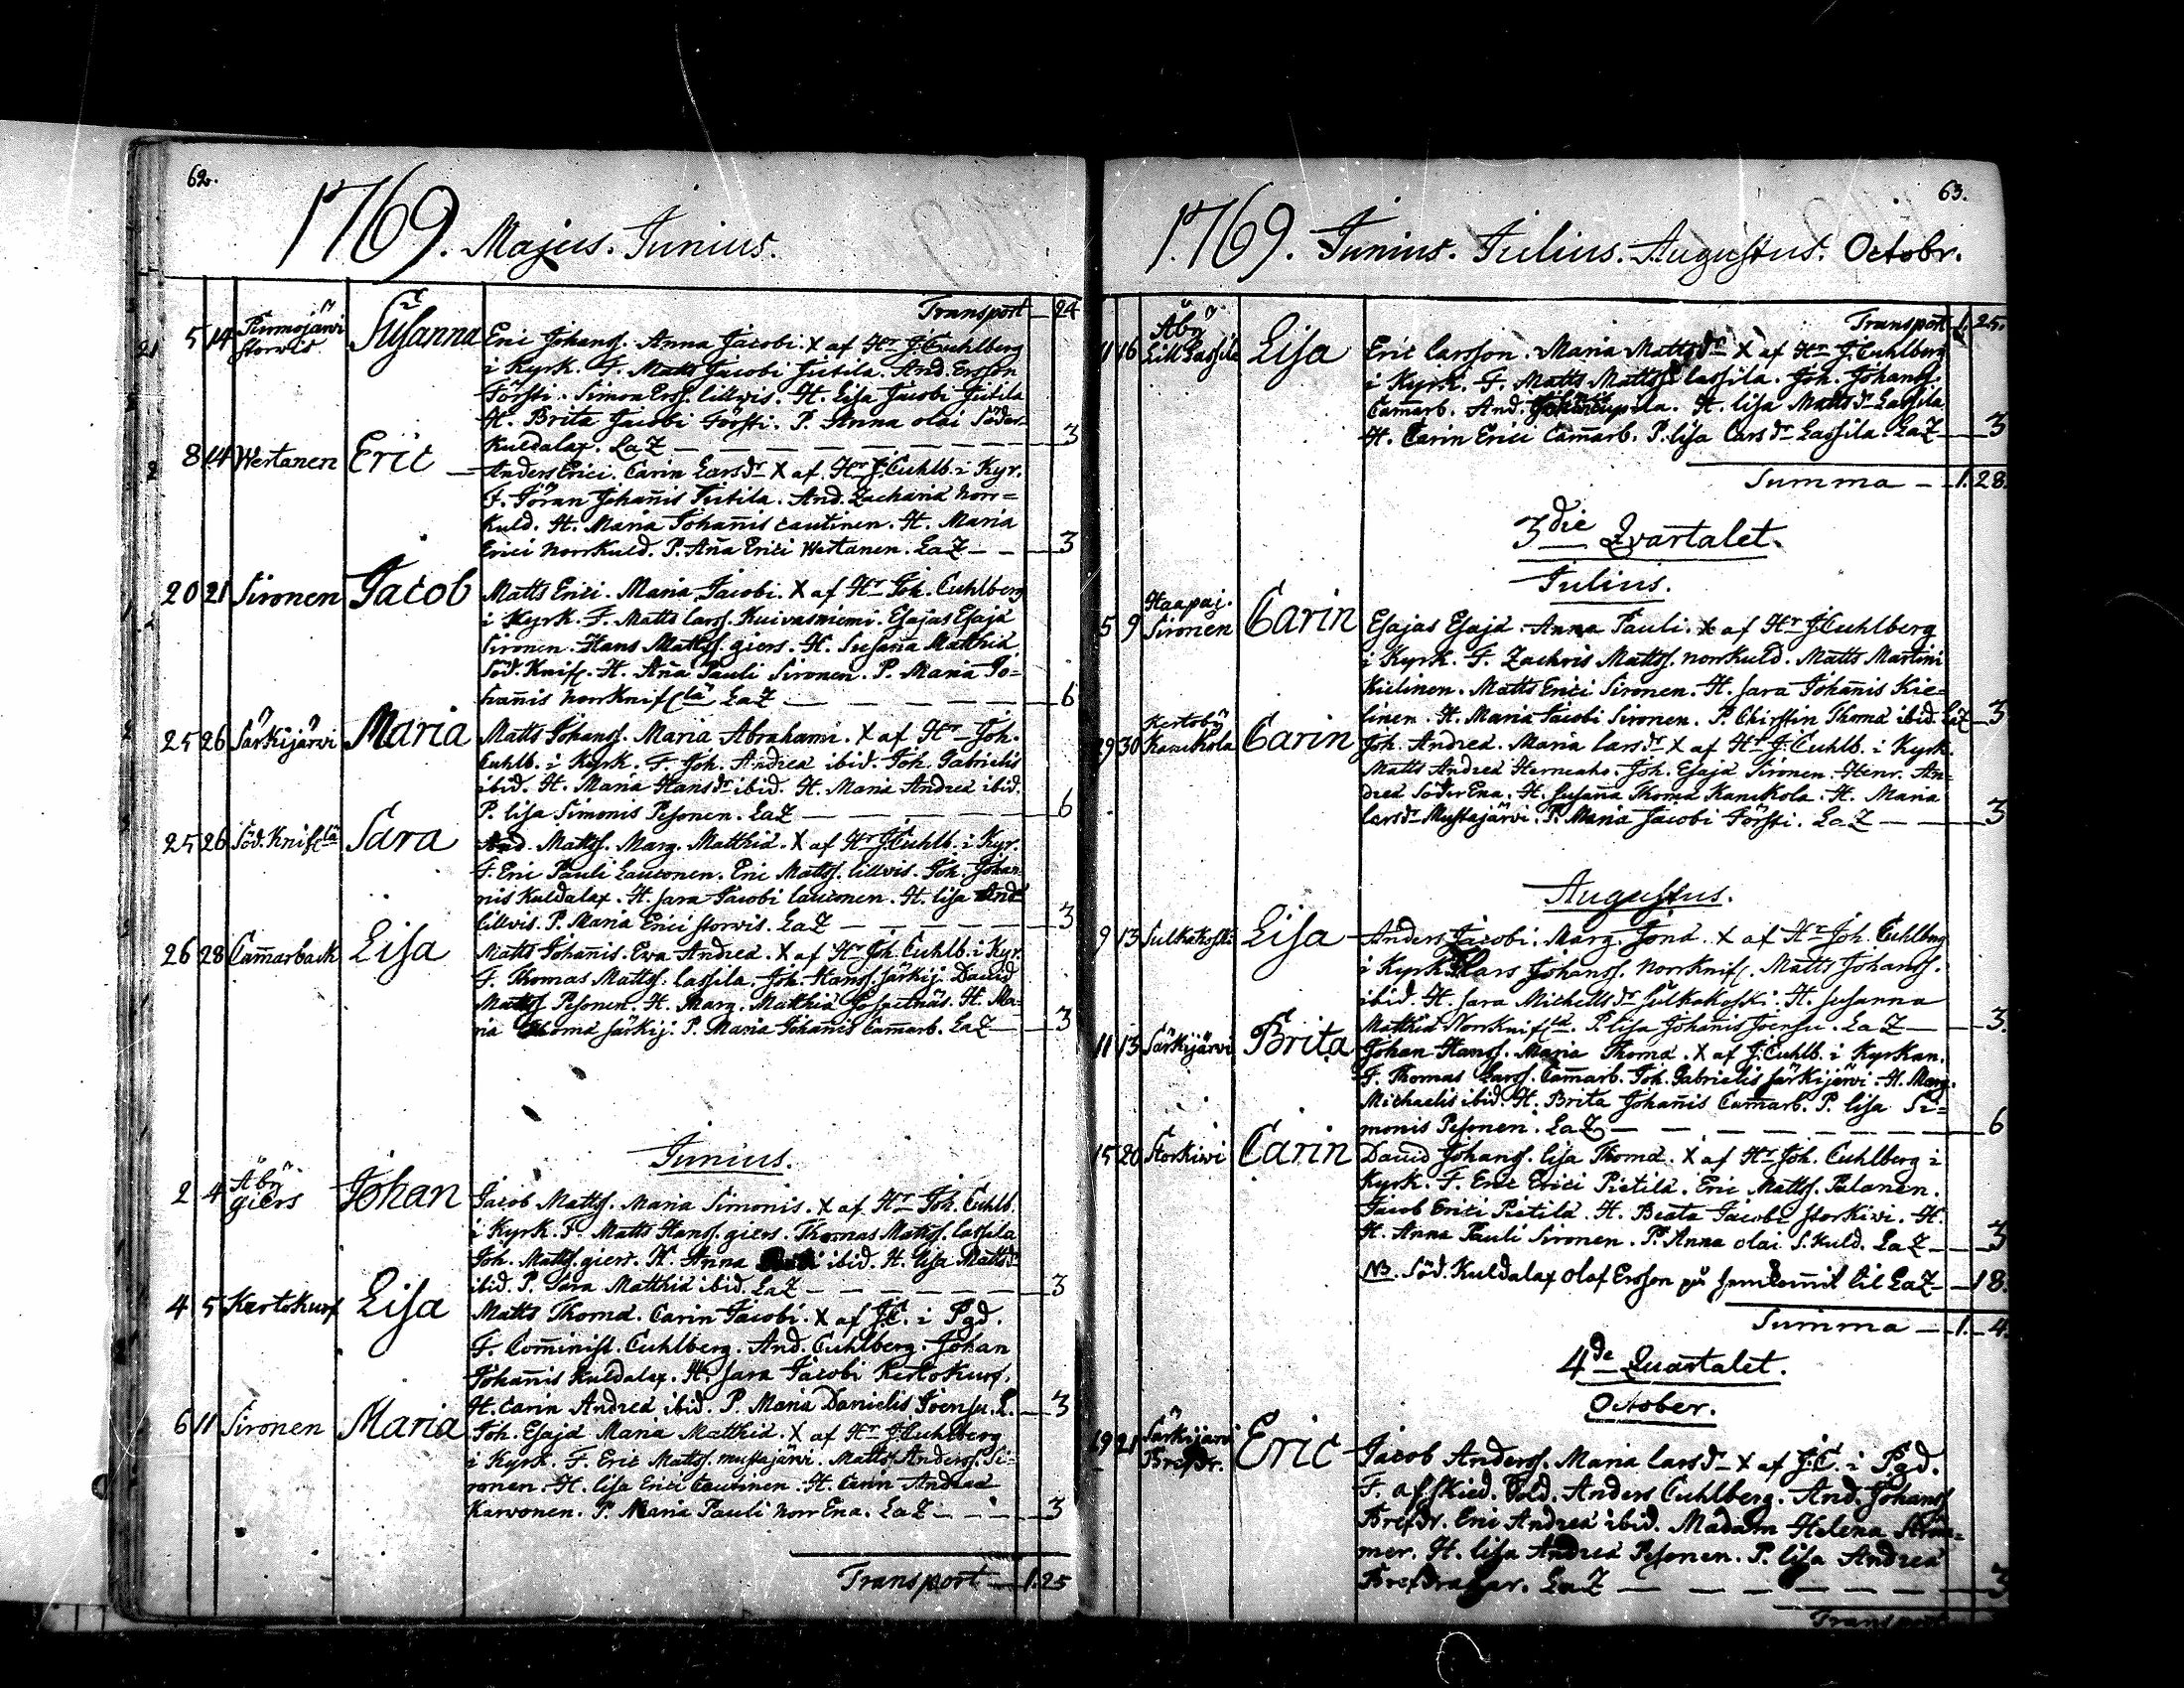 62.
1769. Majus. Junius.
Transport 24
5 14 Permojärwi Storwis Susanna Eric Johanss. Anna Jacobi. X af Hr J. Cuhlberg
i Kyrk. F. Matts Jacobi Jutila. And. Ersson
Försti. Simon Erss. lillwis. H. Lisa Jacobi Jutila
H. Brita Jacobi Försti. P. Anna olai Söder-
Kuldalax. LaZ 3
8 14 Wertanen Eric Anders Erici. Carin Larsdr X af Hr J. Cuhlb. i Kyr.
F. Jöran Johañis Jutila. And. Zachariæ Norr=
Kuld. H. Maria Johañis Lautinen. H. Maria
Erici Norrkuld. P. Aña Erici Wertanen. LaZ 3
20 21 Sironen Jacob Matts Erici. Maria Jacobi. X af Hr Joh. Cuhlberg
i Kyrk. F. Matts Larss. Kuivasniemi. Esajas Esajæ
Sironen. Hans Mattss. giers. H. Susaña Matthiæ
Söd. Knif. H. Aña Pauli Sironen. P. Maria Jo=
hañis Norrknifslä LaZ 6
25 26 Särkijärvi Maria Matts Johanss. Maria Abrahami. X af Hr Joh.
Cuhlb. i Kyrk. F. Joh. Andreæ ibid. Joh. Gabrielis
ibid. H. Maria Hansdr ibid. H. Maria Andreæ ibid.
P. lisa Simonis Pesonen. LaZ 6
25 26 Söd. Knifslä Sara And. Mattss. Marg. Matthiæ. X af Hr J. Cuhlb. i Kyr.
F. Eric Pauli Lautonen. Eric Mattss. lillvis. Joh. Johan
nis Kuldalax. H. Sara Jacobi lautonen. H. lisa And
lillvis. P. Maria Erici storvis. LaZ 3
26 28 Cam̃arback Lisa Matts Johañis. Ewa Andreæ. X af Hr Joh. Cuhlb. i Kyr.
F. Thomas Mattss. Lassila. Joh. Hanss. Särkij. David
Mattss Pesonen. H. Marg. Matthiæ H. Ma-
ria Thomæ Särkij. P. Maria Johañis Cam̃arb. LaZ 3
Junius.
2 4 Åby giers Johan Jacob Mattss. Maria Simonis. X af Hr Joh. Cuhlb.
i Kyrk. F. Matts Hanss. giers. Thomas Mattss. Lassila
Joh. Mattss. giers. H. Anna ibid. H. Lisa Mattsdr
ibid. P. Sara Matthiæ ibid. LaZ 3
4 5 Kertokurf Lisa Matts Thomæ. Carin Jacobi. X af J.C. i Pgd.
F. Com̃inist. Cuhlberg. And. Cuhlberg. Johan
Johañis Kuldalax. H. Sara Jacobi Kertokurf.
H. Carin Andreæ ibid. P. Maria Danielis Joensu. L. 3
6 11 Sironen Maria Joh. Esajæ Maria Matthiæ. X af Hr J. Cuhlberg
i Kyrk. F. Eric Mattss. mustajärvi. Matts Anderss. Si-
ronen. H. lisa Erici Lautinen. H. Carin Andreæ
Karvonen. P. Maria Pauli Norr Ena. LaZ 3
Transport 1.25
63.
1769. Junius. Julius. Augustus. Octobr.
Transport 1.25.
11 16 Åby Lill Lassila Lisa Eric Larsson. Maria Mattsdr X af Hr J. Cuhlberg
i Kyrk. F. Matts Mattss. Lassila. Joh. Johanss.
Cam̃arb. And. H. lisa Mattsdr Lassila
H. Carin Erici Cam̃arb. P. lisa Larsdr Lassila. LaZ 3
Summa 1.28.
3die Qvartalet.
Julius.
5 9 Haapaj. Sironen Carin Esajas Esajæ. Anna Pauli. X af Hr J. Cuhlberg
i Kyrk. F. Zachris Mattss. Norrkuld. Matts Martini
Kielinen. Matts Erici Sironen. H. Sara Johañis Kie-
linen. H. Maria Jacobi Sironen. P. Chirstin Thomæ ibid. LaZ 3
29 30 Kertoby Kanckola Carin Joh. Andreæ. Maria Larsdr X af Hr J. Cuhlb. i Kyrk.
Matts Andreæ Herneaho. Joh. Esajæ Sironen. Henr. An-
dreæ Söder Ena. H. Susaña Thomæ Kanckola. H. Maria
Larsdr Mustajärvi. P. Maria Jacobi Försti. LaZ 3
Augustus.
9 13 Sulkakoski Lisa Anders Jacobi. Marg. Jonæ. X af Hr Joh. Cuhlberg
i Kyrk. Lars Johanss. Norrknif. Matts Johanss.
ibid. H. Sara Michelsdr Sulkakoski. H. Susanna
Matthiæ Norrknifslä. P. lisa Johañis Joensu. LaZ 3.
11 13 Särkijärvi Brita Johan Hanss. Maria Thomæ. X af J. Cuhlb. i Kyrkan.
F. Thomas Larss. Cam̃arb. Joh. Gabrielis Särkijärvi. H. Marg.
Michaelis ibid. H. Brita Johañis Cam̃arb. P. lisa Si=
monis Pesonen. LaZ 6
15 20 Storkiwi Carin David Johanss. lisa Thomæ. X af Hr Joh. Cuhlberg i
Kyrk. F. Eric Erici Pietilä. Eric Mattss. Palanen.
Jacob Erici Pietilä. H. Beata Jacobi Storkiwi. H.
H. Anna Pauli Sironen. P. Anna olai S. Kuld. LaZ 3
NB. Söd. Kuldalax Olof Ersson på til LaZ 18.
Summa 1. 4.
4de Quartalet.
October.
19 21 Särkijärvi Brefdr. Eric Jacob Anderss. Maria Larsdr X af J.C. i Pgd.
F. afskied. Sold. Anders Cuhlberg. And. Johanss
Brefdr. Eric Andreæ ibid. Madam Helena
mer. H. lisa Andreæ Pesonen. P. lisa Andreæ
Brefdragar. LaZ 3
Transport